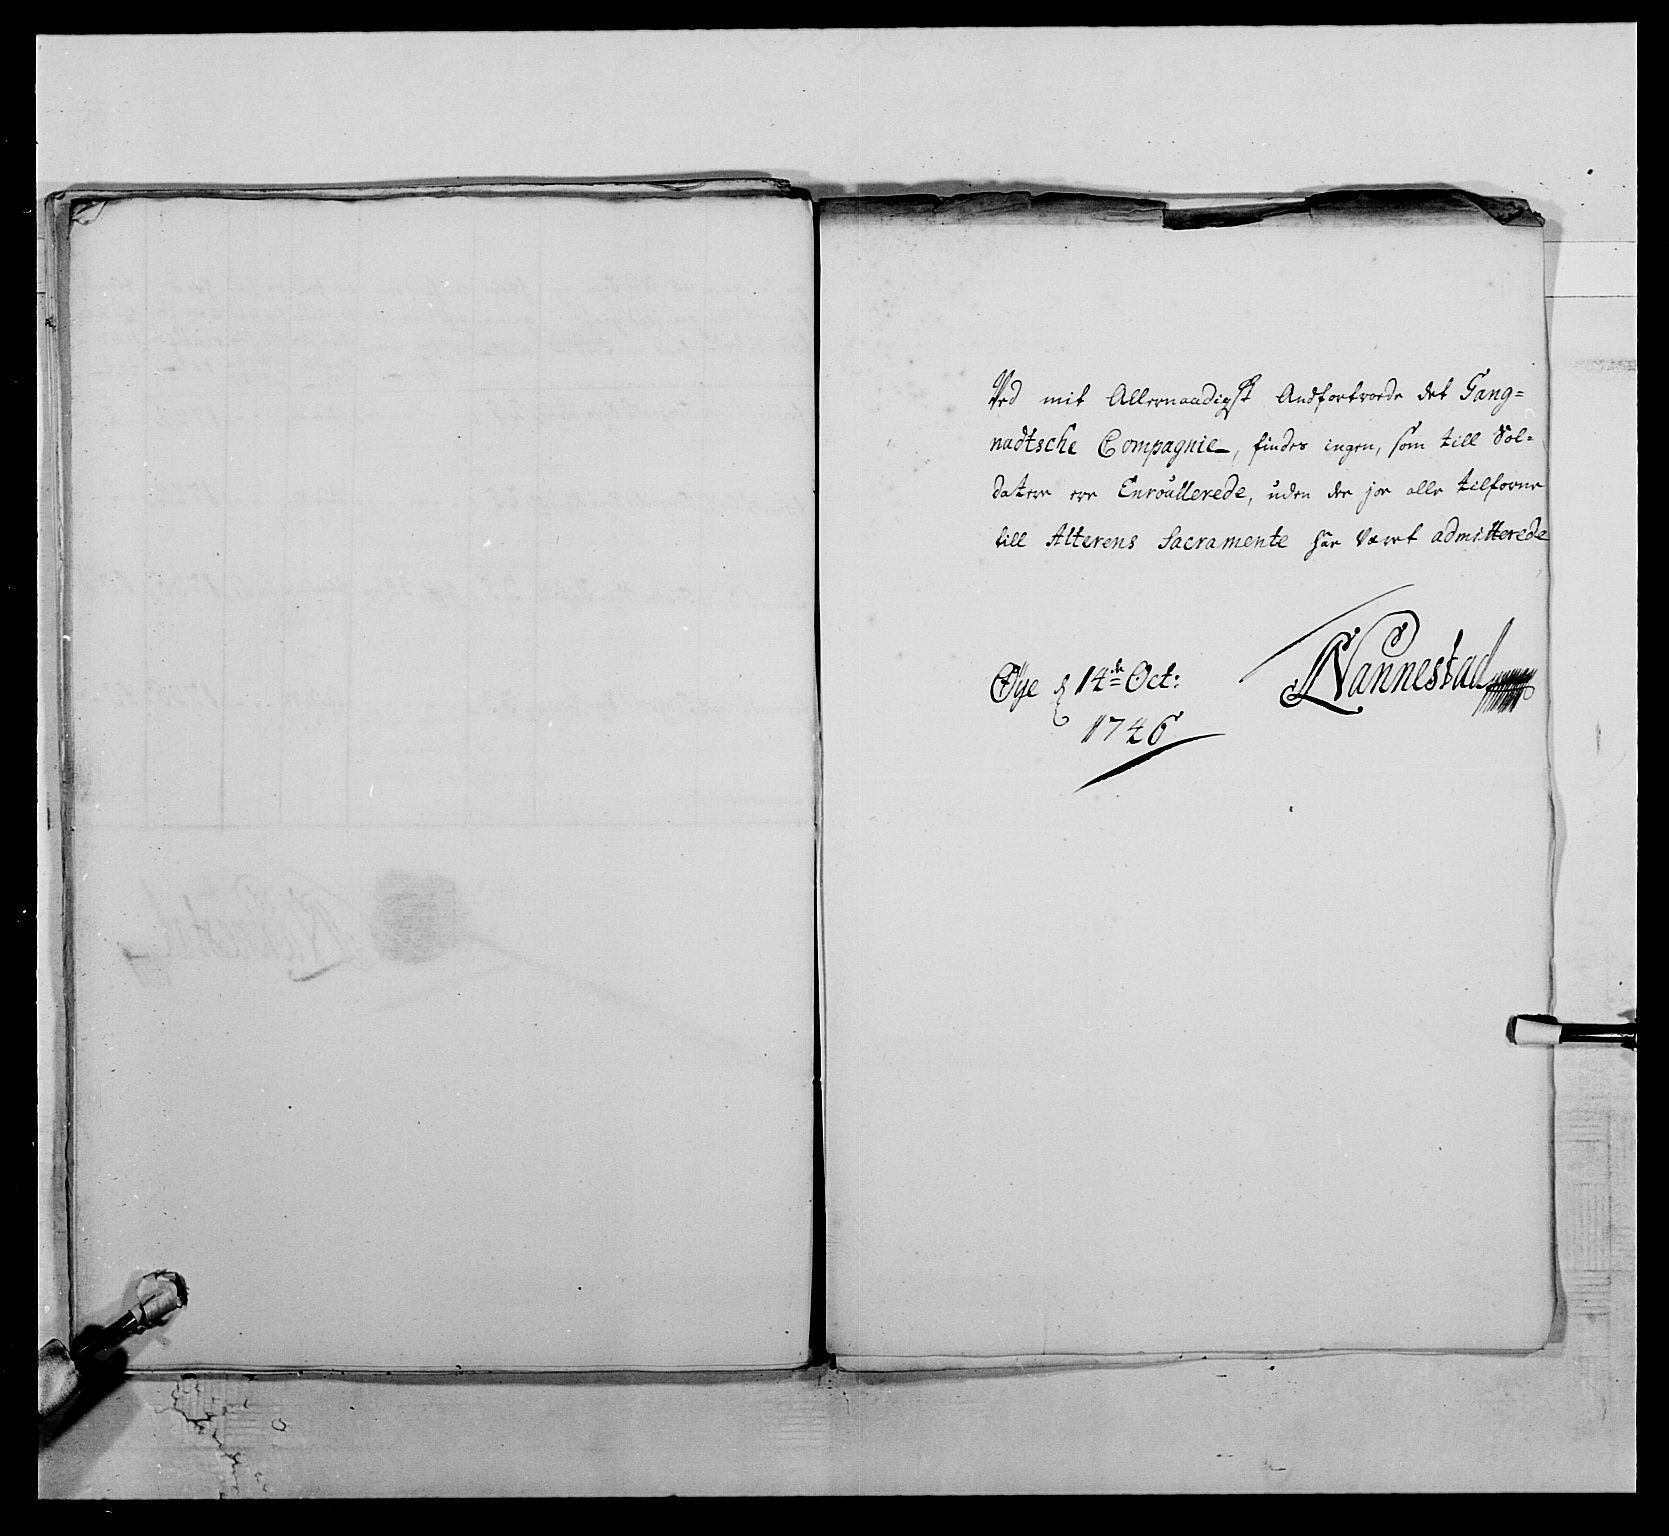 Ved mit Allernaadigst Andfortroede det Gang=
nadtsche Compagnie, findes ingen, som till Sol=
dater ere Enroullerede, uden de jo alle tilforne
till Alterens Sacramente har været admitterede
Øye d 14de Oct:
1746
Nannestad